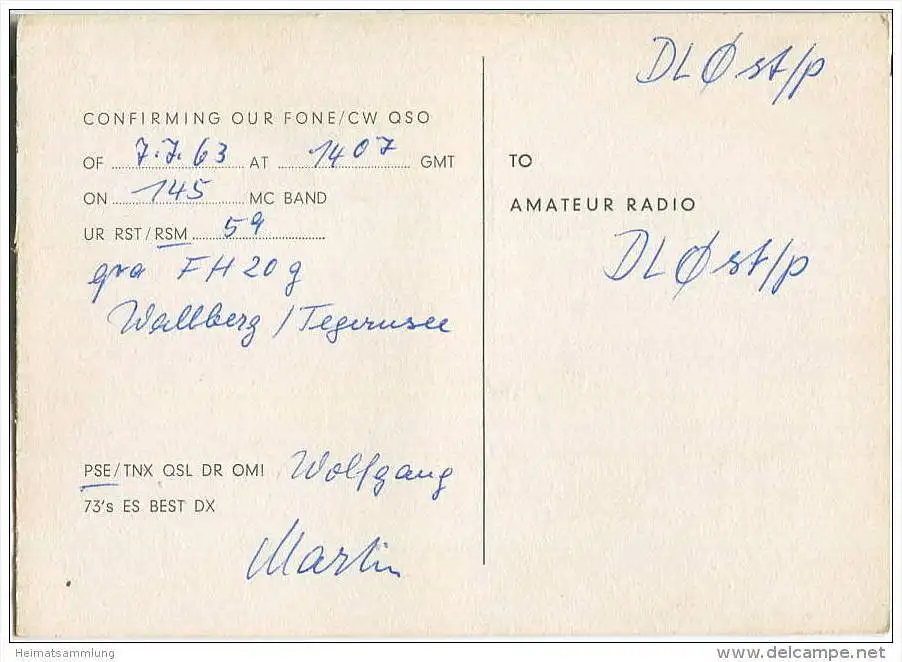 CONFIRMING OUR FONE/CW QSO
OF 7.7.63 AT 1407 GMT
ON 145 MC BAND
UR RST/RSM 59
qra FH20g
Wallberg / Tegernsee
PSE/TNX QSL DR OM! Wolfgang
73's ES BEST DX
Martin
DLØst/p
TO
AMATEUR RADIO
DLØst/p
Heimatsammlung
www.delcampe.net